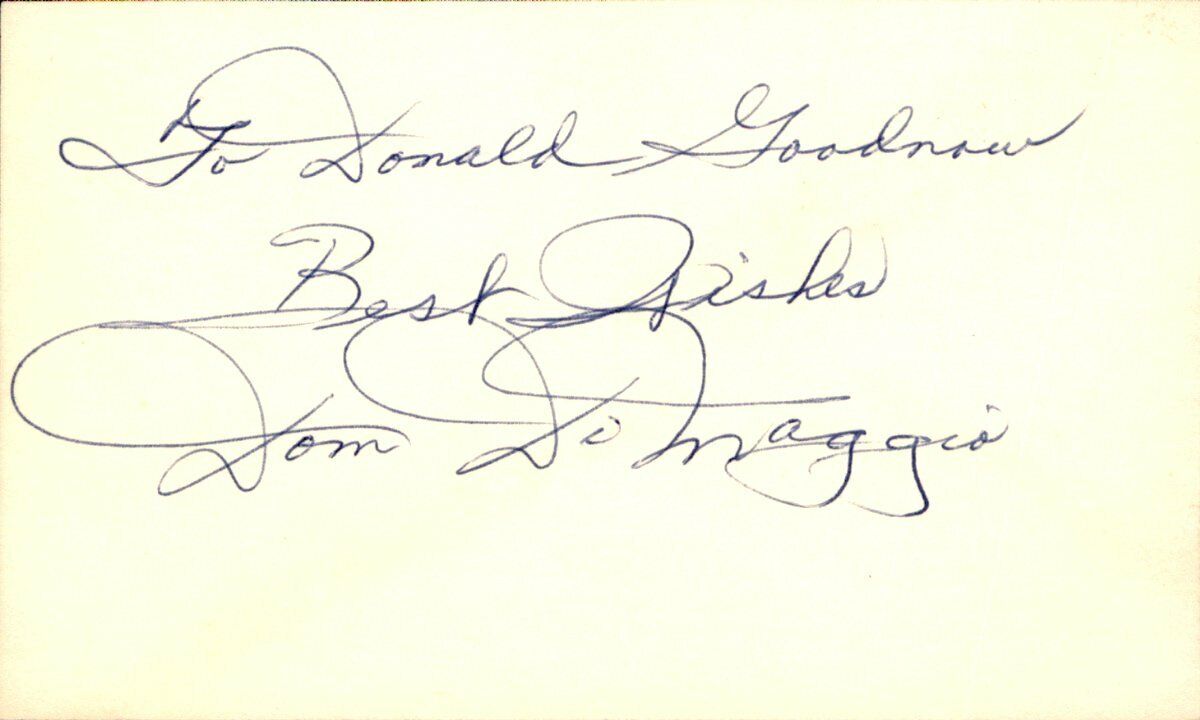 To Donald Goodnow
Best Wishes
Dom DiMaggio